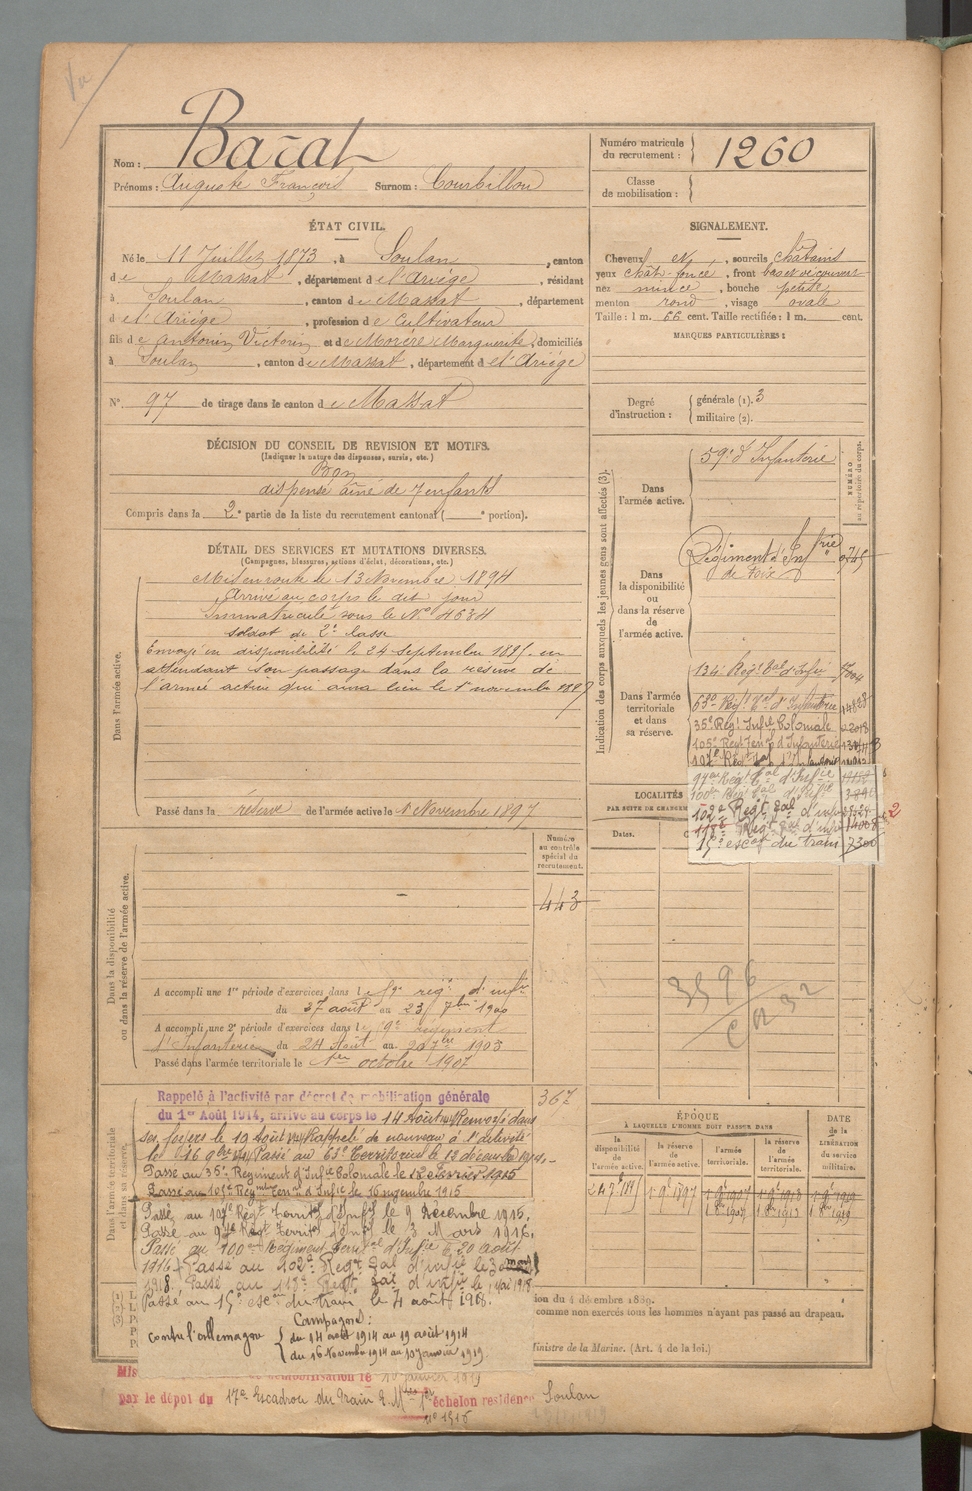 Vu
Nom : Bacat
Prénoms : Auguste François Surnom : Courbillou
Numéro matricule du recrutement : 1260
Classe de mobilisation :
ÉTAT CIVIL.
Né le 11 Juillet 1873, à Soulan, canton
de Massat, département de l'Ariège, résidant
à Soulan, canton de Massat, département
de l'Ariège, profession de Cultivateur
fils de Antonin Victorin et de Morère Marguerite, domiciliés
à Soulan, canton de Massat, département de l'Ariège
N° 97 de tirage dans le canton de Massat
SIGNALEMENT.
Cheveux N, sourcils châtains
yeux chât. foncé, front bas et découvert
nez mince, bouche petite
menton rond, visage ovale
Taille : 1 m. 66 cent. Taille rectifiée : 1 m. cent.
MARQUES PARTICULIÈRES :
Degré d'instruction : générale (1). 3
militaire (2).
DÉCISION DU CONSEIL DE REVISION ET MOTIFS.
(Indiquer la nature des dispenses, sursis, etc.)
Bon
dispensé aîné de 7 enfants
Compris dans la 2e partie de la liste du recrutement cantonal ( e portion).
DÉTAIL DES SERVICES ET MUTATIONS DIVERSES.
(Campagnes, blessures, actions d'éclat, décorations, etc.)
Dans l'armée active.
Mis en route le 13 Novembre 1894
Arrivé au corps le dit jour
Immatriculé sous le N° 4634
soldat de 2e classe
Envoyé en disponibilité le 24 Septembre 1895 en
attendant son passage dans la réserve de
l'armée active qui aura lieu le 1er novembre 1897
Passé dans la réserve de l'armée active le 1er Novembre 1897
Indication des corps auxquels les jeunes gens sont affectés (3).
NUMÉRO au répertoire du corps.
Dans l'armée active.
59e d'Infanterie
Dans la disponibilité ou dans la réserve de l'armée active.
Régiment d'Infrie
de Foix
0745
Dans l'armée territoriale et dans sa réserve.
134e Regt Tal d'Infie
63e Regt Tal d'Infanterie
35e Regt Infie Coloniale
105e Regt Terr d'Infanterie
107e Regt Tal d'Infanterie
97e Regt Tal d'Infie
100e Regt Tal d'Infie
102e Regt Tal d'infie
118e Regt Tal d'infie 14008
15e escon du train 7300
2
LOCALITÉS
PAR SUITE DE CHANGEM
Dates.
Numéro au contrôle spécial du recrutement.
443
Dans la disponibilité ou dans la réserve de l'armée active.
A accompli une 1re période d'exercices dans le 59e régt d'infie
du 27 août au 23 7bre 1900
A accompli une 2e période d'exercices dans le 59e régiment
d'Infanterie du 24 Août au 20 7bre 1903
Passé dans l'armée territoriale le 1er octobre 1907
3596
CR 32
367
Dans l'armée territoriale et dans sa réserve.
Rappelé à l'activité par décret de mobilisation générale
du 1er Août 1914, arrivé au corps le 14 Août 1914 Renvoyé dans
ses foyers le 19 Août 1914 Rappelé de nouveau à l'activité
le 16 9bre 1914 Passé au 63e Territorial le 12 décembre 1914.
Passé au 35e Régiment d'Infie Coloniale le 12 février 1915
Passé au 105e Régiment Terral d'Infie le 16 novembre 1915
Passé au 107e Régt Territal d'Infie le 9 Décembre 1915.
Passé au 97e Régt Territal d'Infie le 3 Mars 1916.
Passé au 100e Régiment Territal d'Infie le 20 août
1916 Passé au 102e Regt Tal d'infie le 3
1918 Passé au 118e Regt Tal d'infie le 1 Mai 1918
Passé au 15e escon du train le 4 août 1918.
Campagne :
contre l'allemagne du 14 août 1914 au 19 août 1914
du 16 Novembre 1914 au 10 janvier 1919.
ÉPOQUE
À LAQUELLE L'HOMME DOIT PASSER DANS
la disponibilité de l'armée active.
la réserve de l'armée active.
l'armée territoriale.
la réserve de l'armée territoriale.
DATE de la LIBÉRATION du service militaire.
24 7bre 1895
1er 9bre 1897
1er 9bre 1907
1er 9bre 1913
1er 9bre 1919
1 8bre 1907
1 8bre 1913
1 8bre 1919
ion du 4 décembre 1889.
comme non exercés tous les hommes n'ayant pas passé au drapeau.
Ministre de la Marine. (Art. 4 de la loi.)
Mis démobilisation le 10 janvier 1919
par le dépôt du 17e Escadron du Train échelon résidence Soulan